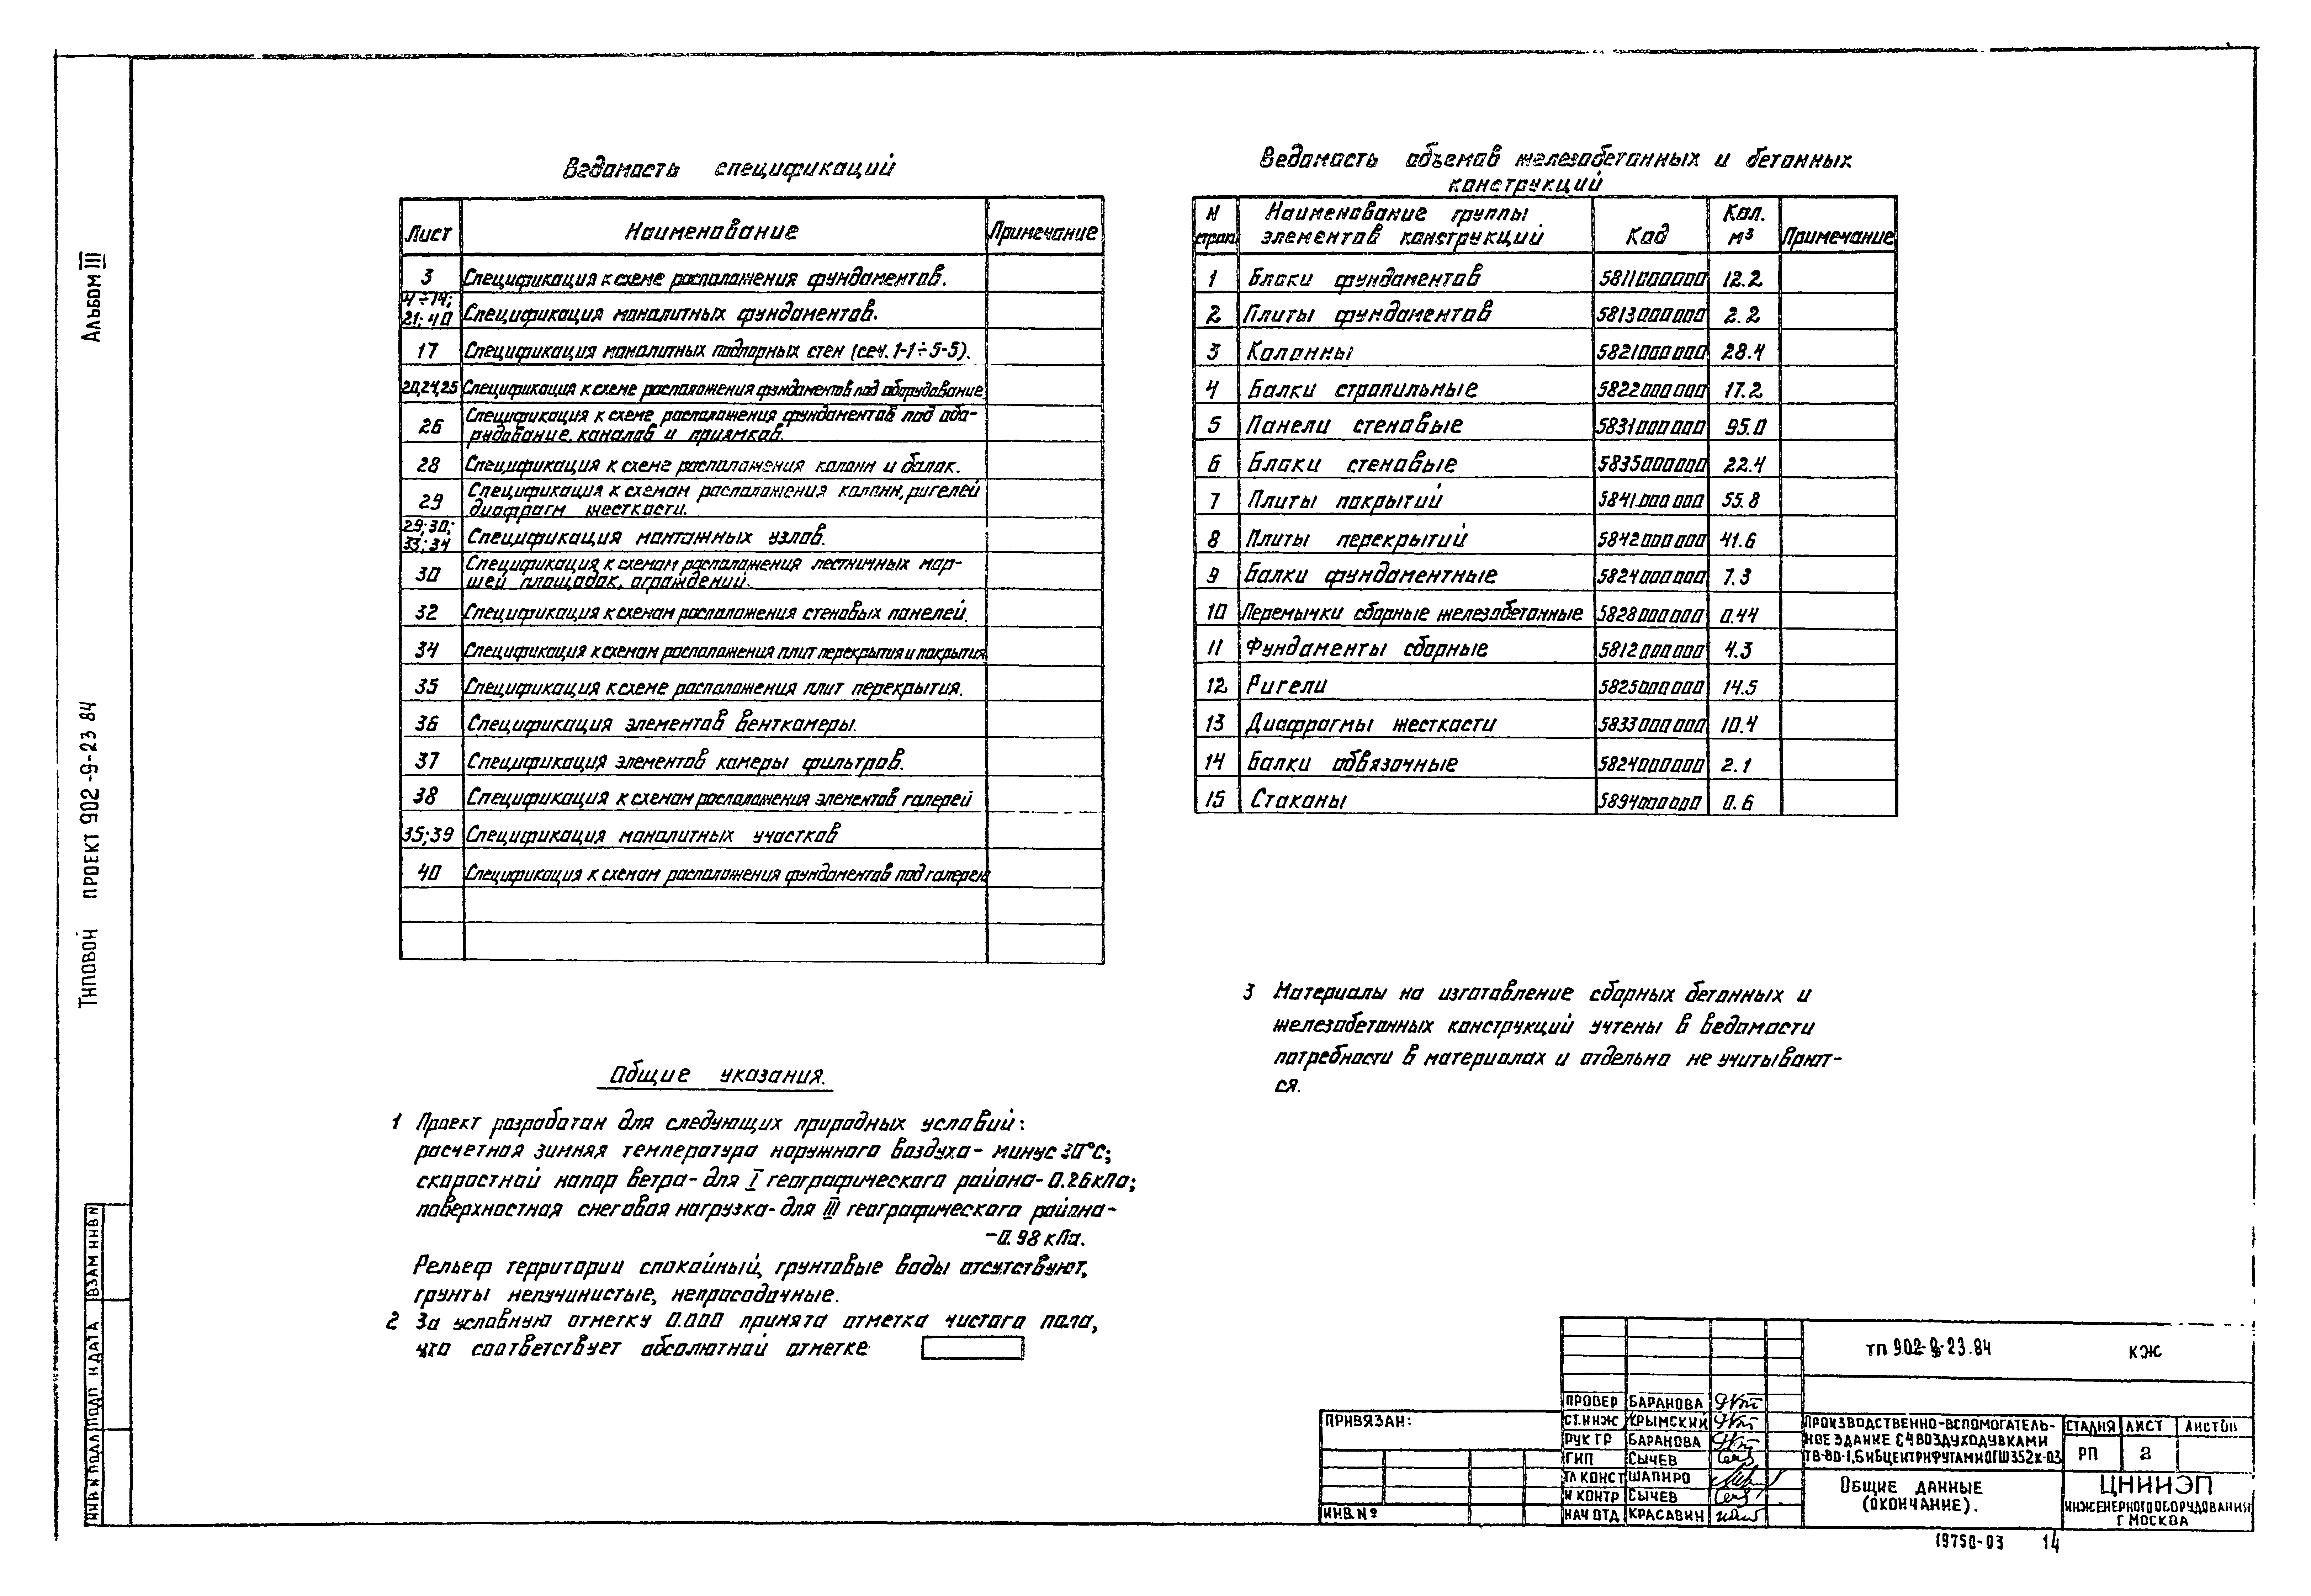 Альбом III
Типовой проект 902-9-23 84
Ведомость спецификаций
Лист Наименование Примечание
3 Спецификация к схеме расположения фундаментов.
4÷14; 21; 40 Спецификация монолитных фундаментов.
17 Спецификация монолитных подпорных стен (сеч. 1-1÷5-5).
20,24,25 Спецификация к схеме расположения фундаментов под оборудование
26 Спецификация к схеме расположения фундаментов под обо-
рудование, каналов и приямков.
28 Спецификация к схеме расположения колонн и балок.
29 Спецификация к схемам расположения колонн, ригелей
диафрагм жесткости.
29; 30; 33; 34 Спецификация монтажных узлов.
30 Спецификация к схемам расположения лестничных мар-
шей площадок, ограждений.
32 Спецификация к схемам расположения стеновых панелей.
34 Спецификация к схемам расположения плит перекрытия и покрытия
35 Спецификация к схеме расположения плит перекрытия.
36 Спецификация элементов венткамеры.
37 Спецификация элементов камеры фильтров.
38 Спецификация к схемам расположения элементов галерей
35; 39 Спецификация монолитных участков
40 Спецификация к схемам расположения фундаментов под галерею
Ведомость объемов железобетонных и бетонных
конструкций
N строк Наименование группы элементов конструкций Код Кол. м³ Примечание
1 Блоки фундаментов 5811000000 12.2
2 Плиты фундаментов 5813000000 2.2
3 Колонны 5821000000 28.4
4 Балки стропильные 5822000000 17.2
5 Панели стеновые 5831000000 95.0
6 Блоки стеновые 5835000000 22.4
7 Плиты покрытий 5841000000 55.8
8 Плиты перекрытий 5842000000 41.6
9 Балки фундаментные 5824000000 7.3
10 Перемычки сборные железобетонные 5828000000 0.44
11 Фундаменты сборные 5812000000 4.3
12 Ригели 5825000000 14.5
13 Диафрагмы жесткости 5833000000 10.4
14 Балки обвязочные 5824000000 2.1
15 Стаканы 5894000000 0.6
Общие указания.
1 Проект разработан для следующих природных условий:
расчетная зимняя температура наружного воздуха - минус 30°С;
скоростной напор ветра - для I географического района - 0.26 кПа;
поверхностная снеговая нагрузка - для III географического района -
- 0.98 кПа.
Рельеф территории спокойный, грунтовые воды отсутствуют,
грунты непучинистые, непросадочные.
2 За условную отметку 0.000 принята отметка чистого пола,
что соответствует абсолютной отметке
3 Материалы на изготовление сборных бетонных и
железобетонных конструкций учтены в ведомости
потребности в материалах и отдельно не учитывают-
ся.
ИНВ N ПОДЛ ПОДП И ДАТА ВЗАМ ИНВ N
ПРИВЯЗАН:
ИНВ. №
ПРОВЕР БАРАНОВА
СТ. ИНЖ КРЫМСКИЙ
РУК ГР БАРАНОВА
ГИП СЫЧЕВ
ГЛ КОНСТ ШАПИРО
Н КОНТР СЫЧЕВ
НАЧ ОТД КРАСАВИН
ТП 902-9-23.84 КЖ
ПРОИЗВОДСТВЕННО-ВСПОМОГАТЕЛЬ-
НОЕ ЗДАНИЕ С 4 ВОЗДУХОДУВКАМИ
ТВ-80-1,6 И 6 ЦЕНТРИФУГАМИ ОГШ 352К-03
СТАДИЯ ЛИСТ ЛИСТОВ
РП 2
ОБЩИЕ ДАННЫЕ
(ОКОНЧАНИЕ).
ЦНИИЭП
ИНЖЕНЕРНОГО ОБОРУДОВАНИЯ
Г МОСКВА
19750-03 14